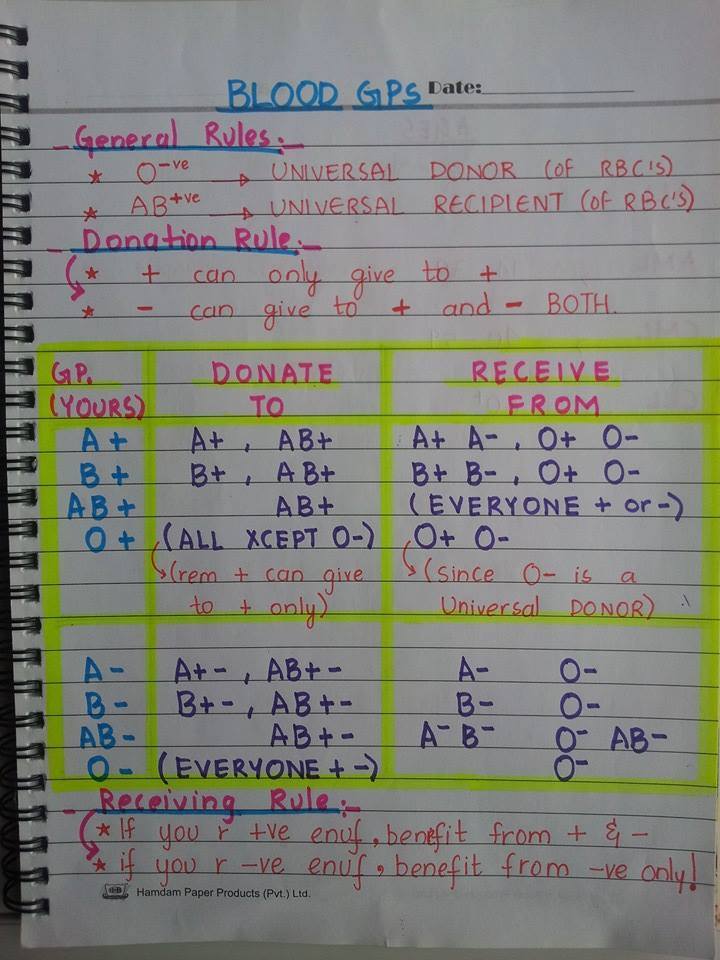 BLOOD GPS Date:
General Rules:-
* O-ve → UNIVERSAL DONOR (OF RBC'S)
* AB+ve → UNIVERSAL RECIPIENT (OF RBC'S)
Donation Rule:-
* + can only give to +
* - can give to + and - BOTH.
GP. (YOURS) DONATE TO RECEIVE FROM
A+ A+ , AB+ A+ A- , O+ O-
B+ B+ , AB+ B+ B- , O+ O-
AB+ AB+ (EVERYONE + or -)
O+ (ALL XCEPT O-) O+ O-
(rem + can give (since O- is a
to + only) Universal DONOR)
A- A+- , AB+- A- O-
B- B+- , AB+- B- O-
AB- AB+- A- B- O- AB-
O- (EVERYONE + -) O-
Receiving Rule:-
* If you r +ve enuf, benefit from + & -
* if you r -ve enuf, benefit from -ve only!
HB Hamdam Paper Products (Pvt.) Ltd.